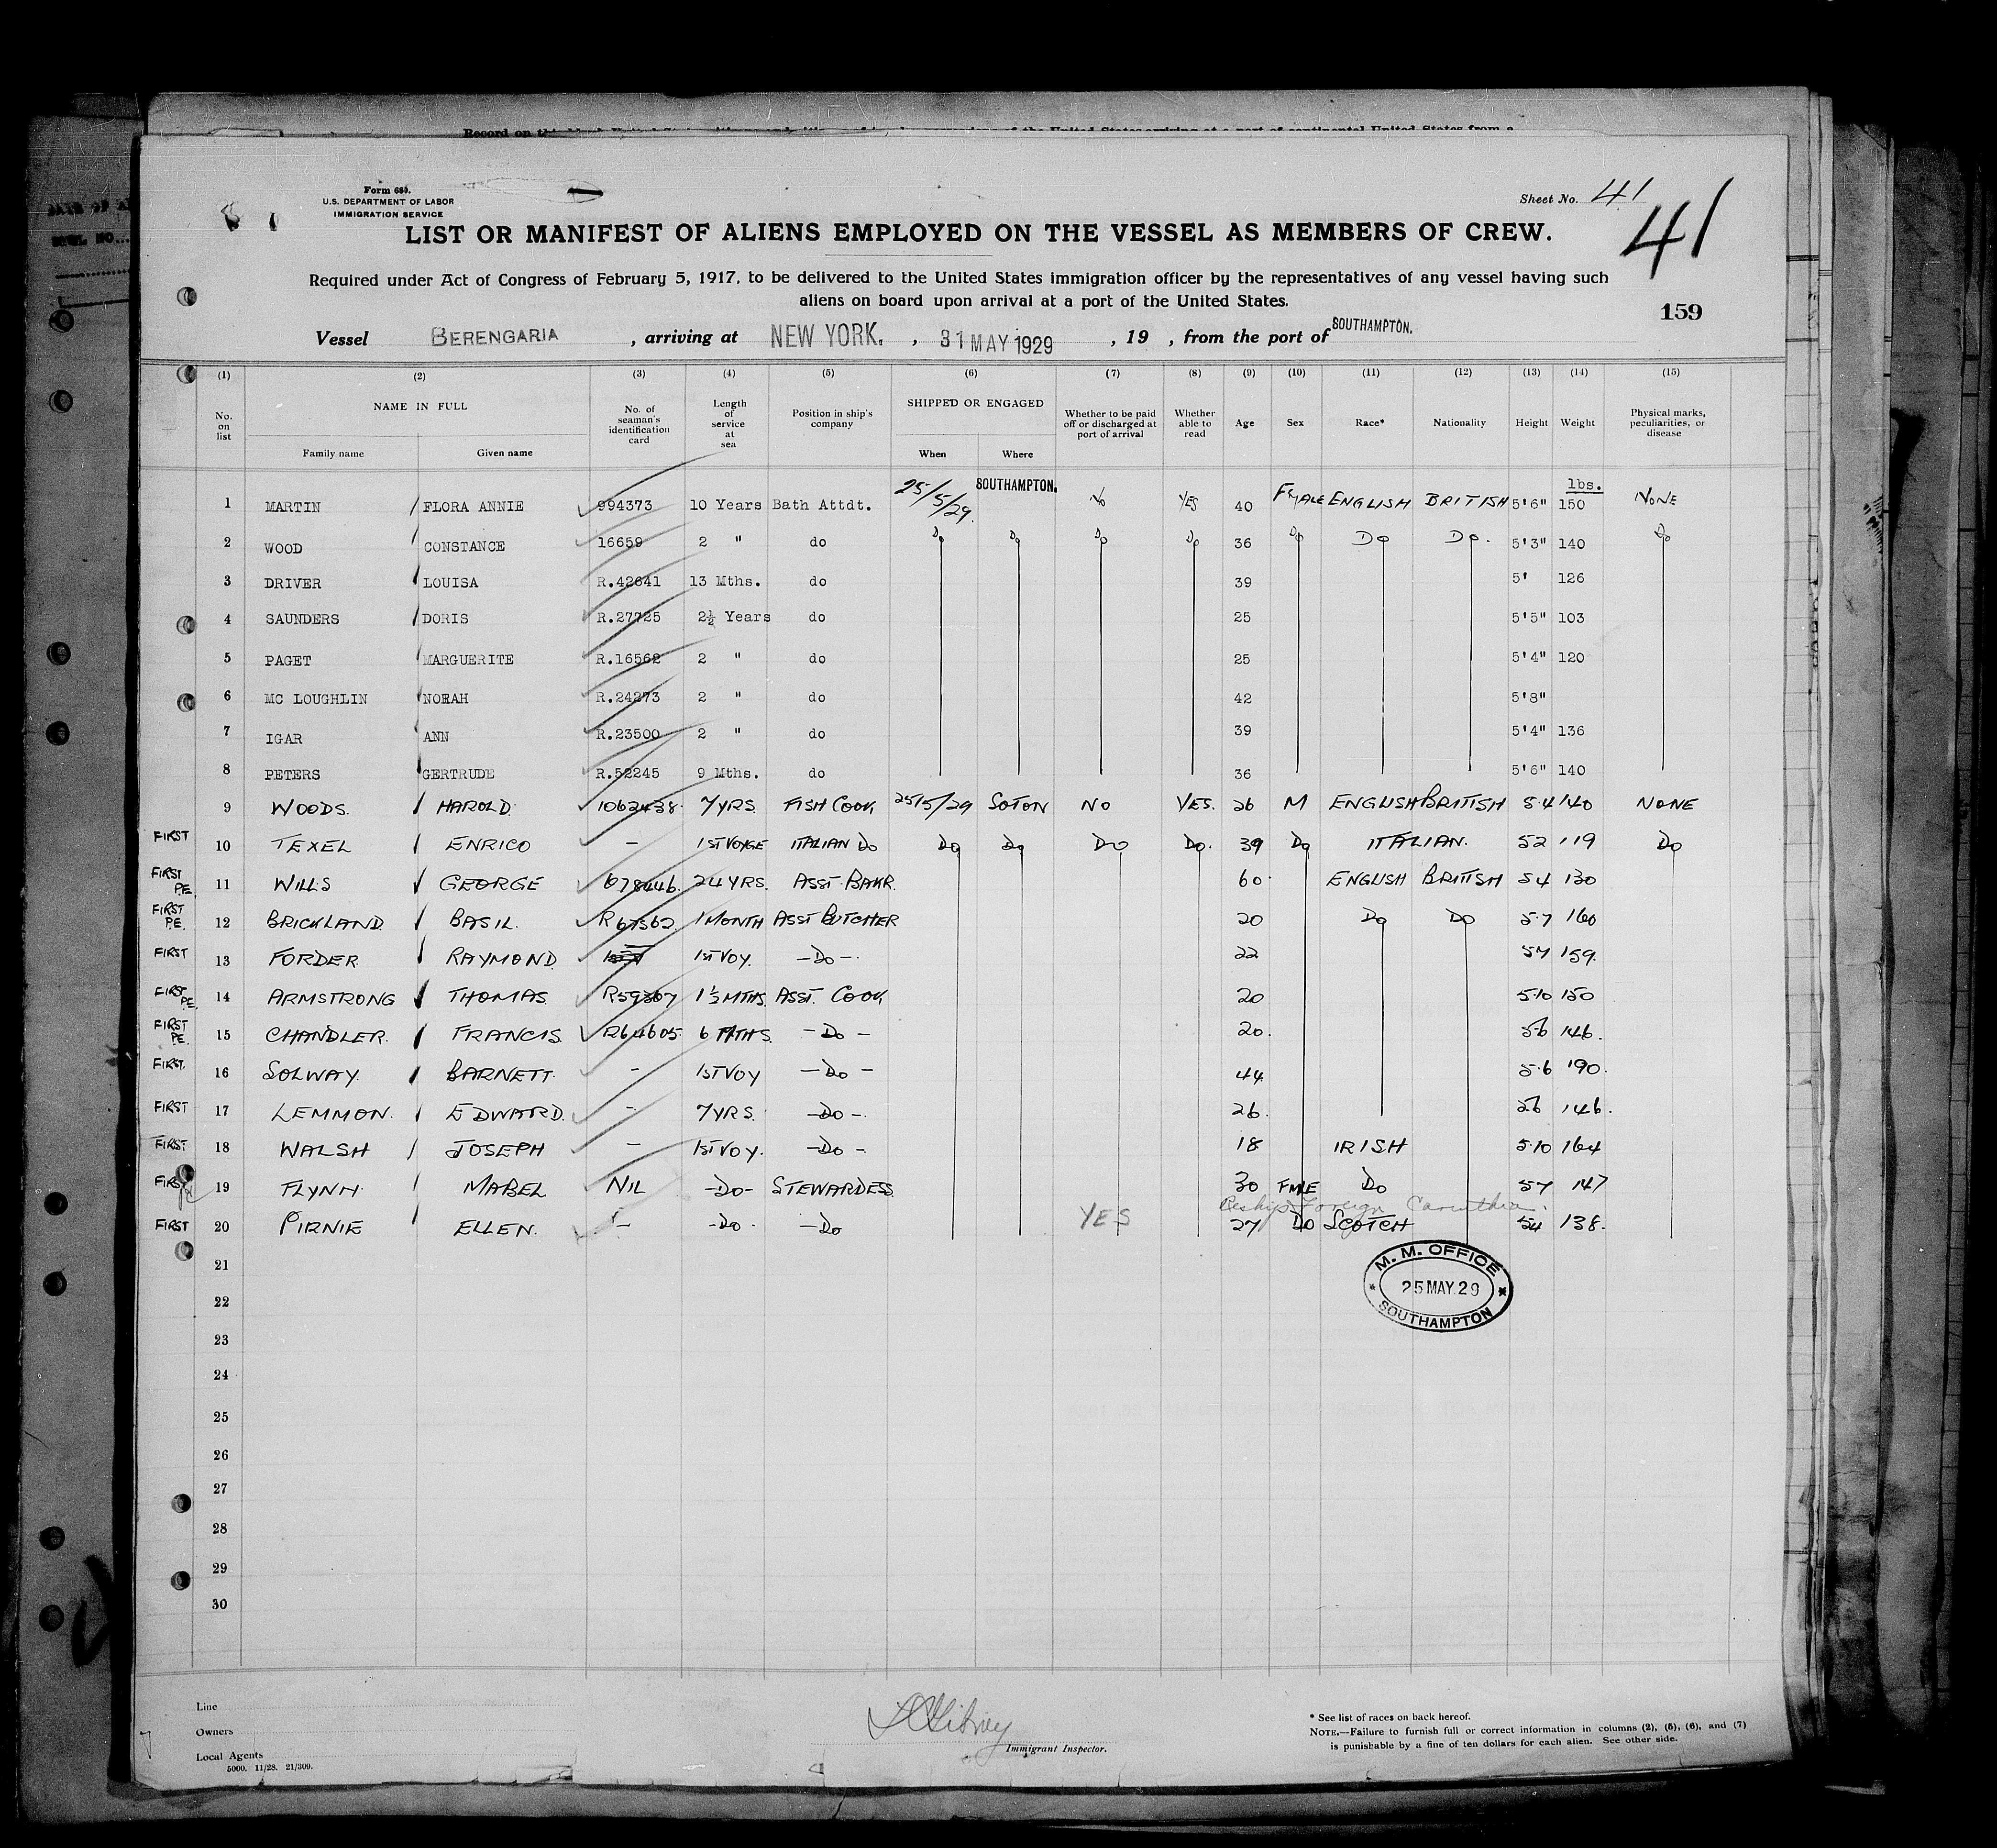 Form 680.
U.S. DEPARTMENT OF LABOR
IMMIGRATION SERVICE
Sheet No. 41
41
LIST OR MANIFEST OF ALIENS EMPLOYED ON THE VESSEL AS MEMBERS OF CREW.
Required under Act of Congress of February 5, 1917, to be delivered to the United States immigration officer by the representatives of any vessel having such
aliens on board upon arrival at a port of the United States.
159
Vessel BERENGARIA , arriving at NEW YORK. , 31 MAY 1929 , 19 , from the port of SOUTHAMPTON.
(1) (2) (3) (4) (5) (6) (7) (8) (9) (10) (11) (12) (13) (14) (15)
No. on list NAME IN FULL Family name Given name No. of seaman's identification card Length of service at sea Position in ship's company SHIPPED OR ENGAGED When Where Whether to be paid off or discharged at port of arrival Whether able to read Age Sex Race* Nationality Height Weight Physical marks, peculiarities, or disease
1 MARTIN FLORA ANNIE 994373 10 Years Bath Attdt. 25/5/29. SOUTHAMPTON. No YES 40 FEMALE ENGLISH BRITISH 5'6" lbs. 150 NONE
2 WOOD CONSTANCE 16659 2 " do Do Do Do Do 36 Do Do Do. 5'3" 140 Do
3 DRIVER LOUISA R.42641 13 Mths. do 39 5' 126
4 SAUNDERS DORIS R.27725 2½ Years do 25 5'5" 103
5 PAGET MARGUERITE R.16562 2 " do 25 5'4" 120
6 MC LOUGHLIN NORAH R.24273 2 " do 42 5'8"
7 IGAR ANN R.23500 2 " do 39 5'4" 136
8 PETERS GERTRUDE R.52245 9 Mths. do 36 5'6" 140
9 WOODS. HAROLD. 1062438. 7 YRS. FISH COOK 25/5/29 SOTON NO YES. 26 M ENGLISH BRITISH 5.4 140 NONE
FIRST 10 TEXEL ENRICO - 1ST VOYGE ITALIAN DO DO DO DO DO. 39 DO ITALIAN. 52 119 DO
FIRST P.E. 11 WILLS GEORGE 678446. 24 YRS. ASST. BAKR. 60. ENGLISH BRITISH 54 130
FIRST P.E. 12 BRICKLAND. BASIL. R67562. 1 MONTH ASST BUTCHER 20 DO DO 5.7 160
FIRST 13 FORDER RAYMOND. 1ST VOY. -DO-. 22 57 159.
FIRST P.E. 14 ARMSTRONG THOMAS. R59367 1½ MTHS. ASST. COOK 20 5.10 150
FIRST P.E. 15 CHANDLER. FRANCIS. R64605. 6 MTHS. -DO- 20. 56 146.
FIRST. 16 SOLWAY. BARNETT. - 1ST VOY -DO- 44 5.6 190.
FIRST 17 LEMMON. EDWARD. - 7 YRS. -DO-. 26. 56 146.
FIRST 18 WALSH JOSEPH - 1ST VOY. -DO- 18 IRISH 5.10 164
FIRST 19 FLYNN. MABEL NIL -DO- STEWARDESS. 30 FMLE DO 57 147
Foreign Carinthia.
FIRST 20 PIRNIE ELLEN. - -DO. -DO YES 27 DO SCOTCH 54 138.
21
M. M. OFFICE
25 MAY 29
SOUTHAMPTON
22
23
24
25
26
27
28
29
30
Line
Owners
Local Agents
5000. 11/28. 21/309.
Immigrant Inspector.
* See list of races on back hereof.
NOTE.—Failure to furnish full or correct information in columns (2), (5), (6), and (7)
is punishable by a fine of ten dollars for each alien. See other side.